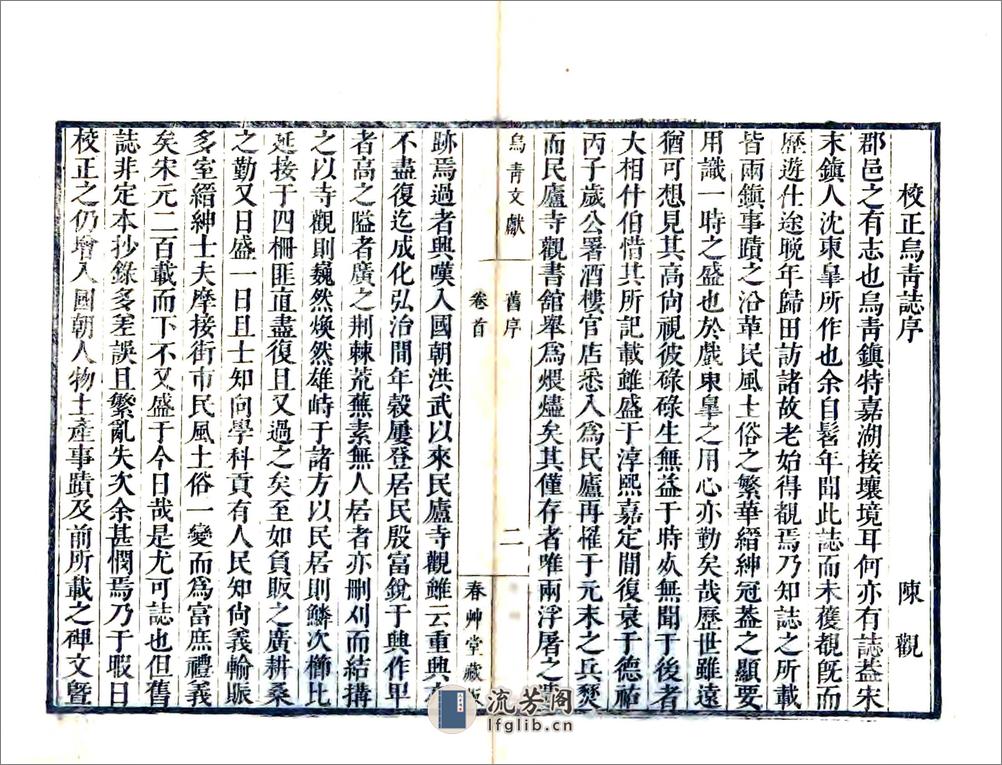 校正烏青誌序
陳觀
郡邑之有志也烏青鎮特嘉湖接壤境耳何亦有誌葢宋
末鎮人沈東皐所作也余自髫年聞此誌而未獲覩旣而
歷遊仕途晚年歸田訪諸故老始得覩焉乃知誌之所載
皆兩鎮事蹟之沿革民風土俗之繁華縉紳冠葢之顯要
用識一時之盛也於戲東皐之用心亦勤矣哉歷世雖遠
猶可想見其高尙視彼碌碌生無益于時㱕無聞于後者
大相什伯惜其所記載雖盛于淳熙嘉定間復衰于德祐
丙子歲公署酒樓官店悉入爲民廬再罹于元末之兵燹
而民廬寺觀書舘舉爲煨燼矣其僅存者唯兩浮屠之
烏青文獻
舊序
卷首
二
春艸堂藏
跡焉過者興嘆入國朝洪武以來民廬寺觀雖云重興
不盡復迄成化弘治間年穀屢登居民殷富銳于興作甲
者高之隘者廣之荆棘荒蕪素無人居者亦刪刈而結搆
之以寺觀則巍然煥然雄峙于諸方以民居則鱗次櫛比
延接于四柵匪直盡復且又過之矣至如負販之廣耕桑
之勤又日盛一日且士知向學科貢有人民知尙義輸賑
多室縉紳士夫摩接街市民風土俗一變而爲富庶禮義
矣宋元二百載而下不又盛于今日哉是尤可誌也但舊
誌非定本抄錄多差誤且繁亂失次余甚憫焉乃于暇日
校正之仍增入國朝人物土產事蹟及前所載之碑文曁
流芳阁
lfglib.cn